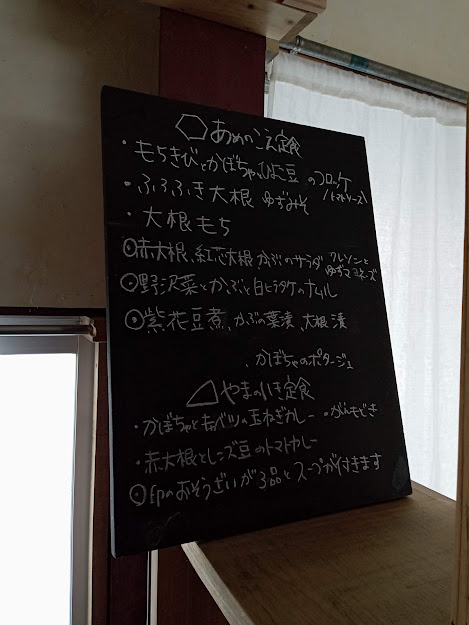 あめのこえ定食
・もちきびとかぼちゃ、ひよこ豆のコロッケ
(トマトソース)
・ふろふき大根 ゆずみそ
・大根もち
◎赤大根、紅芯大根、かぶのサラダ クレソンと
ゆずマヨネーズ
◎野沢菜とかぶと白ヒラタケのナムル
◎紫花豆煮、かぶの葉漬、大根漬
、かぼちゃのポタージュ
やまのいき定食
・かぼちゃとキャベツの玉ねぎカレー ・がんもどき
・赤大根とレンズ豆のトマトカレー
◎印のおそうざいが3品とスープが付きます